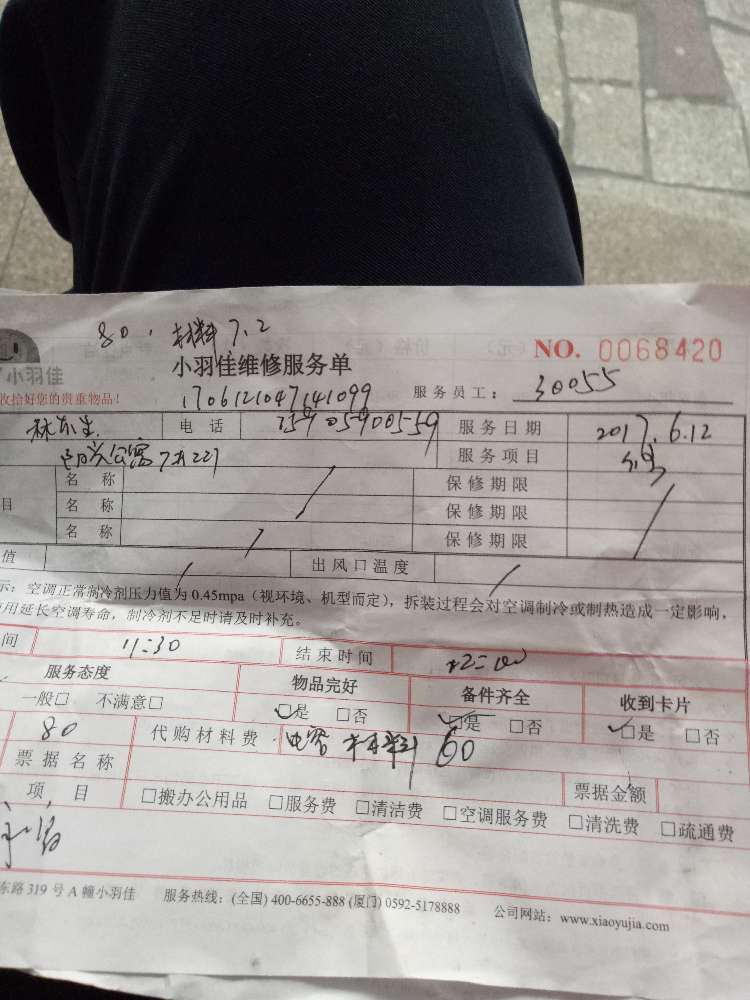 80. 材料7.2
小羽佳
小羽佳维修服务单
NO. 0068420
收拾好您的贵重物品!
1706121047141099
服务员工: 30055
林先生
电话
15905900559
服务日期
2017.6.12
公寓7#227
服务项目
名称
保修期限
目
名称
保修期限
名称
保修期限
值
出风口温度
示:空调正常制冷剂压力值为0.45mpa(视环境、机型而定),拆装过程会对空调制冷或制热造成一定影响,
用延长空调寿命,制冷剂不足时请及时补充。
间
11:30
结束时间
12:00
服务态度
物品完好
备件齐全
收到卡片
一般□ 不满意□
□是 □否
□是 □否
□是 □否
80
代购材料费
电容 材料 60
票据名称
票据金额
项目
□搬办公用品 □服务费 □清洁费 □空调服务费 □清洗费 □疏通费
东路319号A幢小羽佳 服务热线:(全国) 400-6655-888 (厦门) 0592-5178888 公司网站:www.xiaoyujia.com